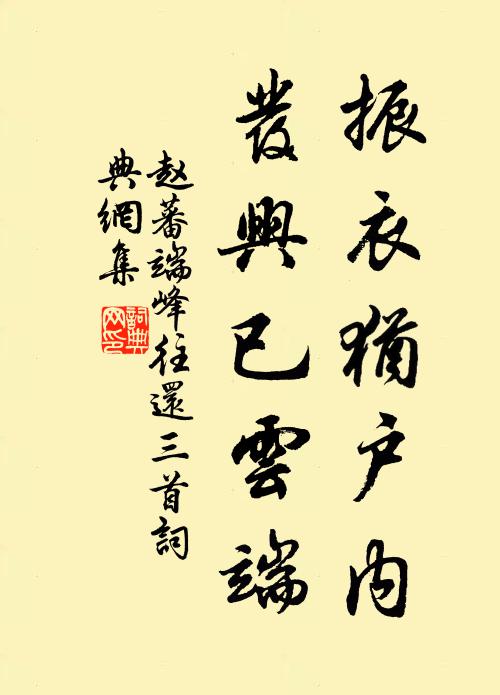 振衣猶户内
發興已雲端
赵蕃端峰往還三首詞
典網集
詞典
网印